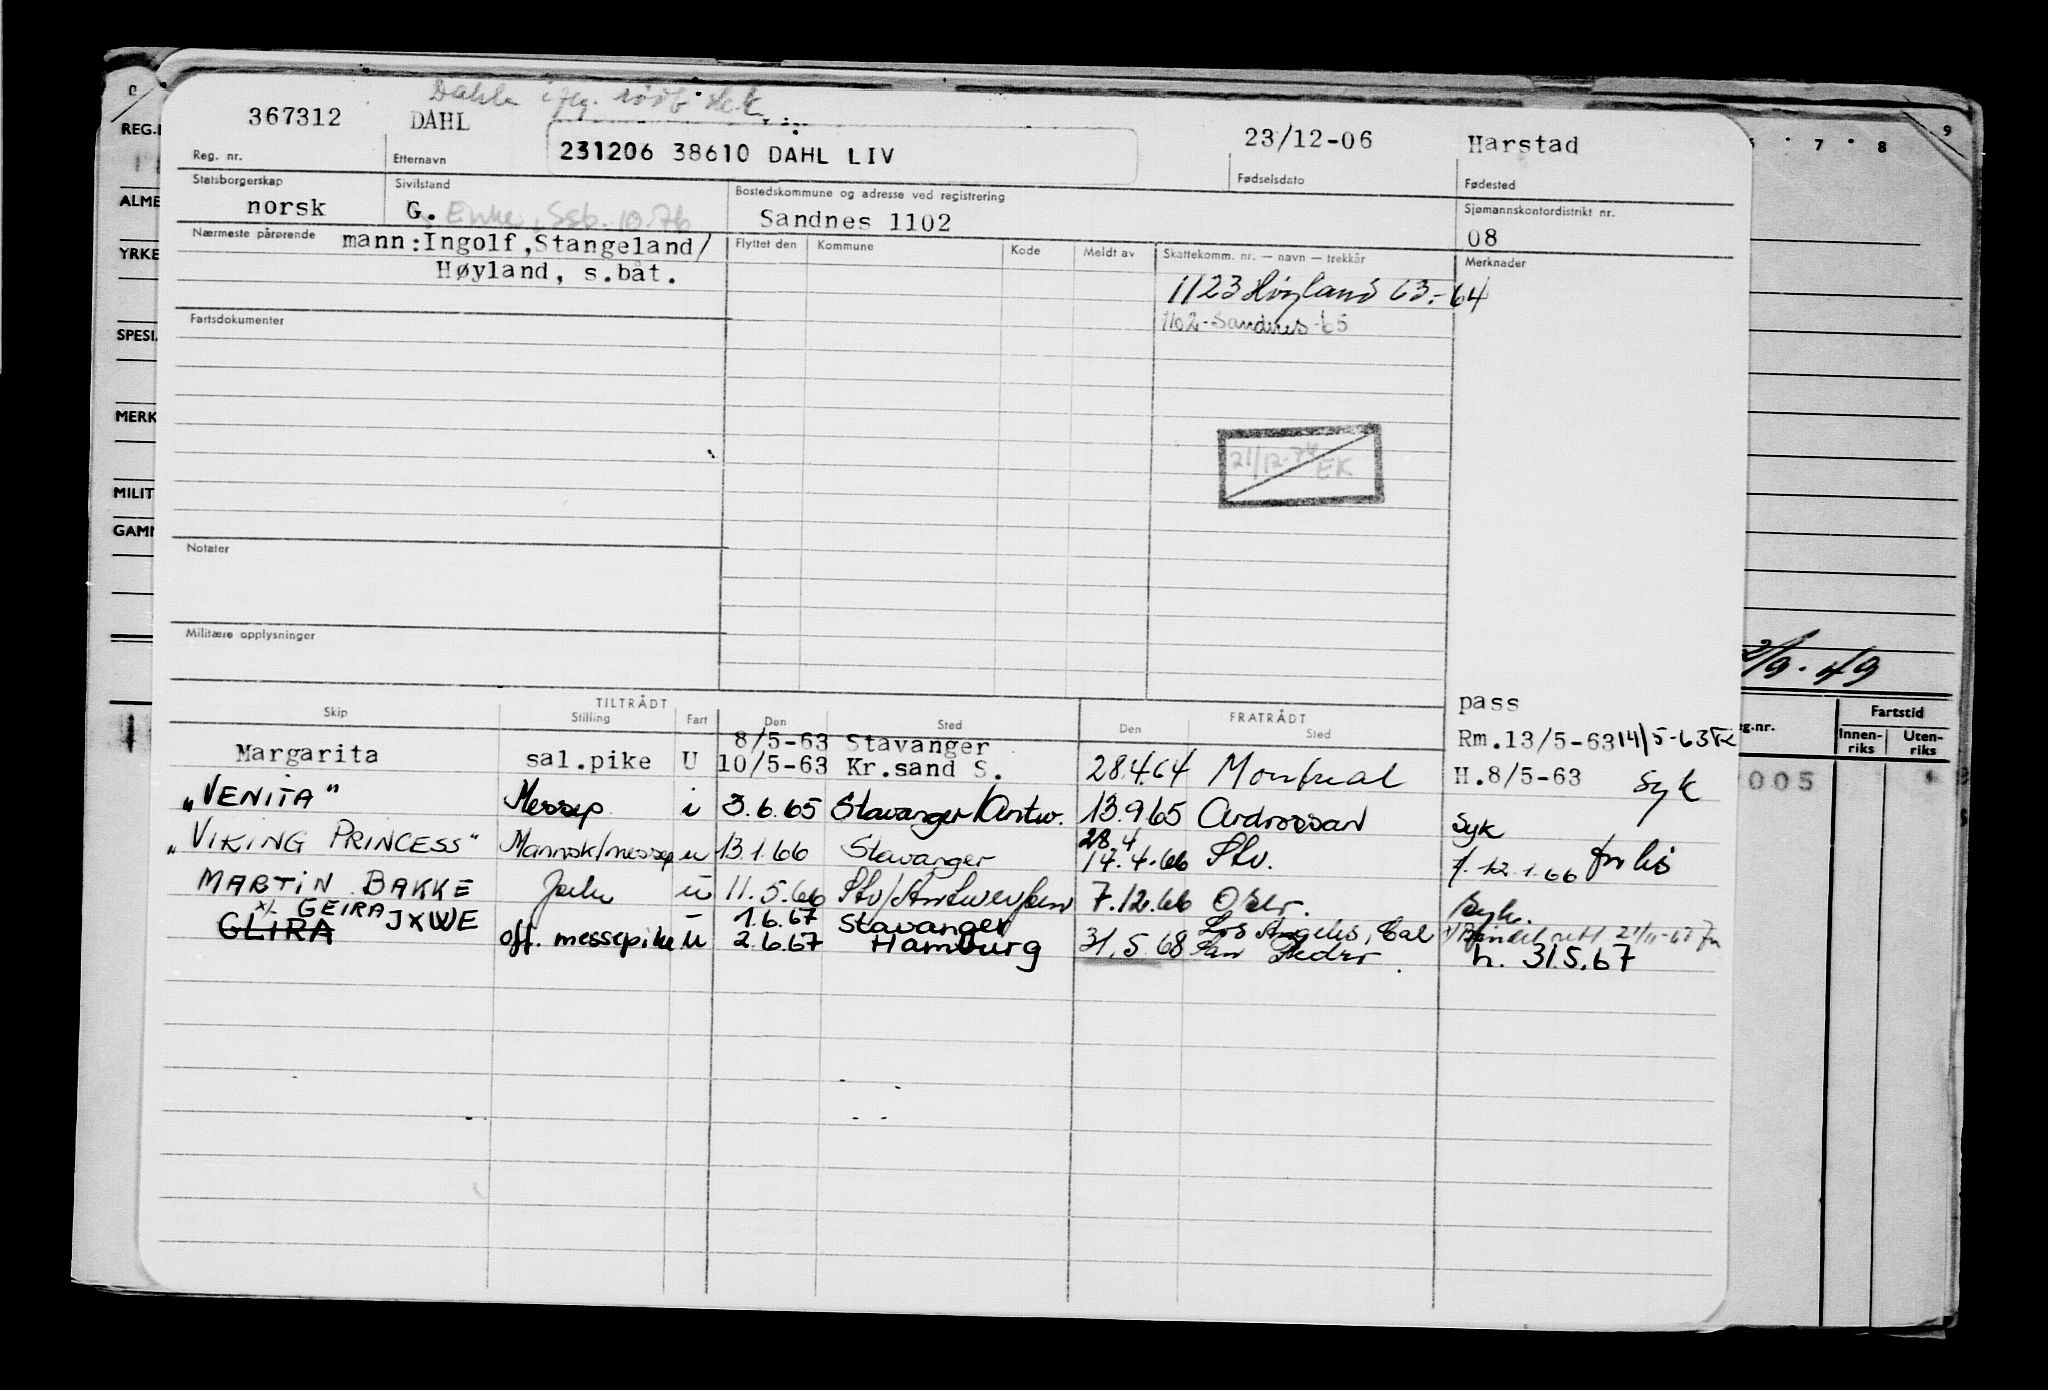 367312 DAHL 23/12-06 Harstad
231206 38610 DAHL LIV
Reg. nr. Etternavn Fødselsdato Fødested
Statsborgerskap Sivilstand Bostedskommune og adresse ved registrering Sjømannskontordistrikt nr.
norsk G. Enke, Seb. 10.76 Sandnes 1102 08
Nærmeste pårørende mann:Ingolf,Stangeland/
Høyland, s.båt.
Flyttet den Kommune Kode Meldt av Skattekomm. nr. — navn — trekkår Merknader
1123 Høyland 63.-64
1102-Sandnes-65
Fartsdokumenter
21/12-74 EK
Notater
Militære opplysninger
TILTRÅDT FRATRÅDT
Skip Stilling Fart Den Sted Den Sted
pass
Margarita sal.pike U 8/5-63 Stavanger Rm.13/5-63 14/5-63
10/5-63 Kr.sand S. 28.4.64 Montreal H.8/5-63 Syk
"VENITA" Messep i 3.6.65 Stavanger/Antw. 13.9.65 Ardrossan Syk
"VIKING PRINCESS" Mannsk/messep u 13.1.66 Stavanger 28.4
14.4.66 Stv. 12.1.66
MARTIN BAKKE u 11.5.66 Stv/Antwerpen 7.12.66 Syk.
x/. GEIRA JXWE 1.6.67 Stavanger Los Angeles, Cal
GLIRA off. messepike u 2.6.67 Hamburg 31.5.68 San Pedro h. 31.5.67
REG.
ALME
YRKE
SPESI
MERK
MILIT
GAMN
7 8 9
2/9-49
g.nr. Fartstid
Innen-riks Uten-riks
005